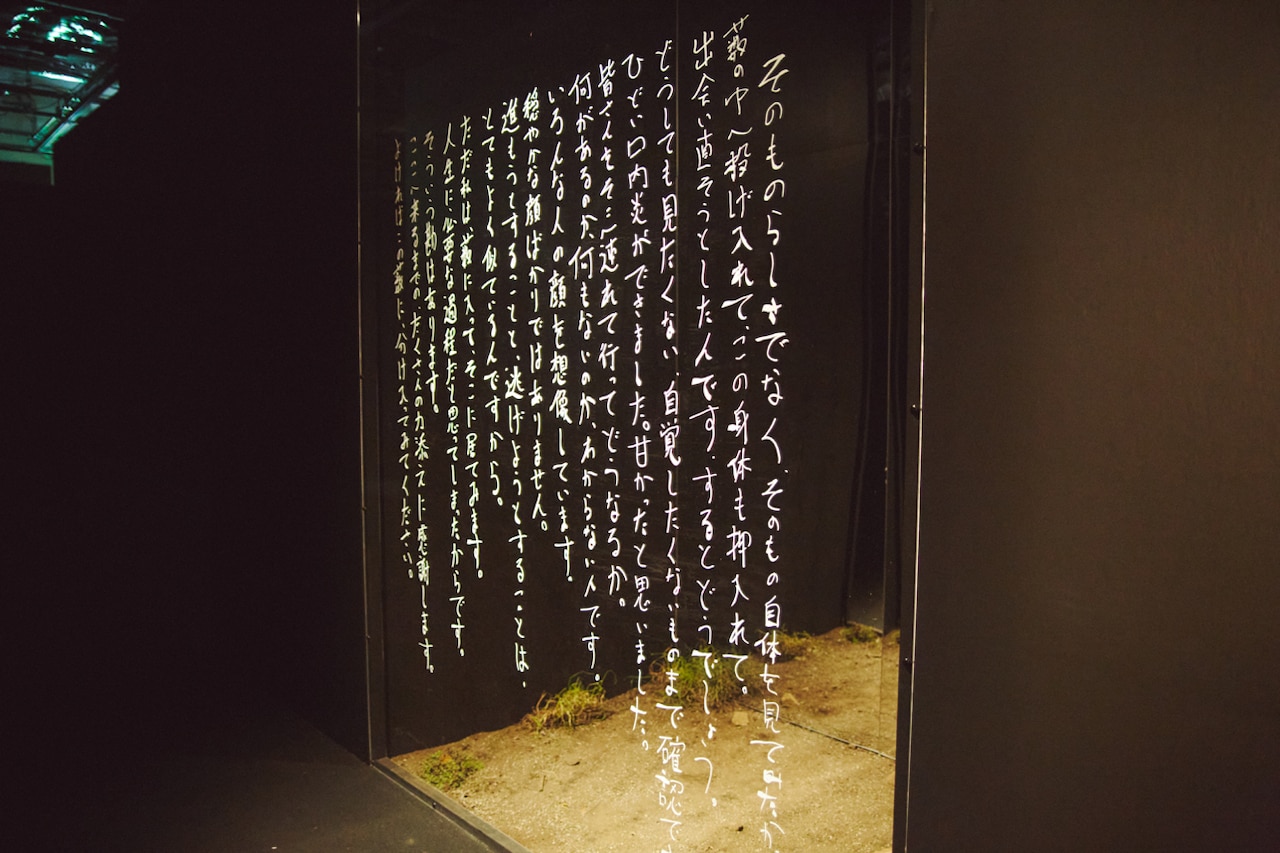 そのものらしさでなく、そのもの自体を見てみたか
藪の中へ投げ入れて、この身体も押入れて。
出会い直そうとしたんです。するとどうでしょう。
どうしても見たくない、自覚したくないものまで確認で
ひどい口内炎ができました。甘かったと思いました。
皆さんをそこに連れて行ってどうなるか。
何があるのか、何もないのか、わからない人です。
いろんな人の顔を想像しています。
穏やかな顔ばかりではありません。
進もうとすることと、逃げようとすることは、
とてもよく似ているんですから。
ただ私は、藪に入って、そこに居てみます。
人生に、必要な過程だと思ってしまったからです。
そういう勘はあります。
ここへ来るまでの、たくさんの力添えに感謝します。
よければこの藪に、分け入ってみてください。